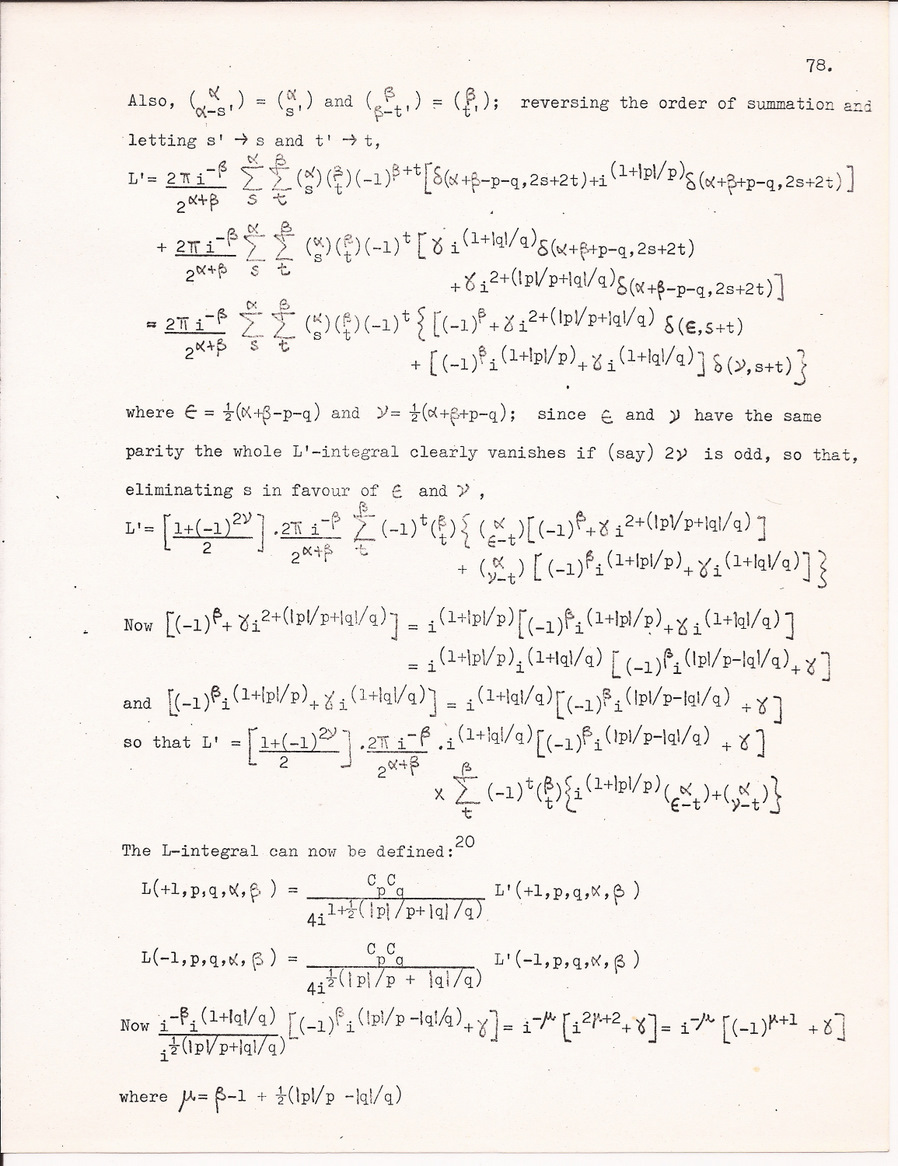 78.
Also, (α α-s') = (α s') and (β β-t') = (β t'); reversing the order of summation and
letting s' → s and t' → t,
L'= 2π i^-β / 2^α+β Σ_s^α Σ_t^β (α s)(β t)(-1)^β+t [δ(α+β-p-q,2s+2t)+i^(1+|p|/p) δ(α+β+p-q,2s+2t)]
+ 2π i^-β / 2^α+β Σ_s^α Σ_t^β (α s)(β t)(-1)^t [γ i^(1+|q|/q) δ(α+β+p-q,2s+2t)
+γ i^2+(|p|/p+|q|/q) δ(α+β-p-q,2s+2t)]
= 2π i^-β / 2^α+β Σ_s^α Σ_t^β (α s)(β t)(-1)^t {[(-1)^β+γ i^2+(|p|/p+|q|/q) δ(ϵ,s+t)
+ [(-1)^β i^(1+|p|/p)+γ i^(1+|q|/q)] δ(ν,s+t)}
where ϵ = ½(α+β-p-q) and ν= ½(α+β+p-q); since ϵ and ν have the same
parity the whole L'-integral clearly vanishes if (say) 2ν is odd, so that,
eliminating s in favour of ϵ and ν,
L'= [1+(-1)^2ν / 2] . 2π i^-β / 2^α+β Σ_t^β (-1)^t (β t) { (α ϵ-t)[(-1)^β+γ i^2+(|p|/p+|q|/q)]
+ (α ν-t) [(-1)^β i^(1+|p|/p)+γ i^(1+|q|/q)]}
Now [(-1)^β+ γ i^2+(|p|/p+|q|/q)] = i^(1+|p|/p)[(-1)^β i^(1+|p|/p)+γ i^(1+|q|/q)]
= i^(1+|p|/p) i^(1+|q|/q) [(-1)^β i^(|p|/p-|q|/q)+γ]
and [(-1)^β i^(1+|p|/p)+γ i^(1+|q|/q)] = i^(1+|q|/q)[(-1)^β i^(|p|/p-|q|/q) +γ]
so that L' = [1+(-1)^2ν / 2] . 2π i^-β / 2^α+β . i^(1+|q|/q)[(-1)^β i^(|p|/p-|q|/q) + γ]
x Σ_t^β (-1)^t (β t){i^(1+|p|/p) (α ϵ-t)+(α ν-t)}
The L-integral can now be defined:20
L(+1,p,q,α,β ) = C_p C_q / 4i^1+½(|p|/p+|q|/q) L'(+1,p,q,α,β )
L(-1,p,q,α,β ) = C_p C_q / 4i^½(|p|/p + |q|/q) L'(-1,p,q,α,β )
Now i^-β i^(1+|q|/q) / i^½(|p|/p+|q|/q) [(-1)^β i^(|p|/p-|q|/q)+γ]= i^-μ [i^2μ+2+γ]= i^-μ [(-1)^μ+1 +γ]
where μ= β-1 + ½(|p|/p -|q|/q)